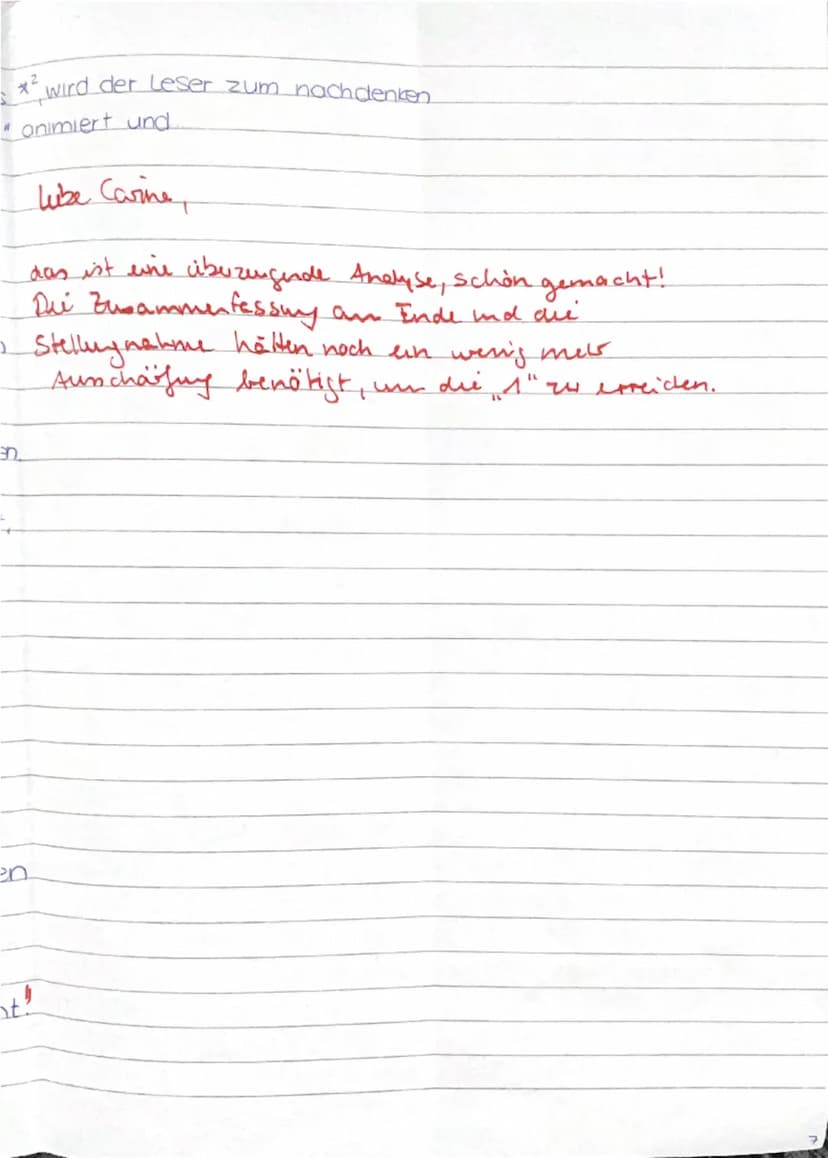 x², wird der Leser zum nachdenken
animiert und
liebe Carina,
das ist eine überzeugende Analyse, schön gemacht!
Die Zusammenfassung am Ende und die
Stellungnahme hätten noch ein wenig mehr
Ausschärfung benötigt, um die „1“ zu erreichen.
en
en
st!
7